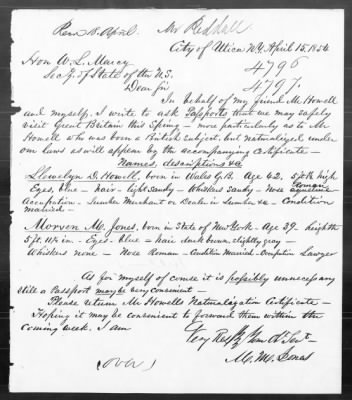 Rec. 18 April.  Mr Redhall
City of Utica N.Y. April 15, 1854
Hon W. L. Marcy
4796
Secy of State of the U.S.
4797.
Dear Sir
In behalf of my friend Mr Howell
and myself, I write to ask Passports that we may safely
visit Great Britain this Spring - more particularly as to Mr
Howell who was born a British subject, but naturalized under
our laws as will appear by the accompanying certificate -
Names, descriptions &a
Llewelyn D. Howell, born in Wales G.B. Age 42, 5 ft high
Eyes, blue - hair - light sandy - Whiskers Sandy - Nose Roman
Occupation - Lumber Merchant or Dealer in Lumber &a - Condition
married -
Morven M. Jones, born in State of New York - Age 39. height
5 ft. 11¼ in. - Eyes - blue = hair dark brown, slightly gray -
Whiskers none - Nose Roman - Condition Married - Occupation Lawyer
As for myself of course it is possibly unnecessary
still a Passport may be very convenient -
Please return Mr Howells Naturalization Certificate -
Hoping it may be convenient to forward them within the
coming week. I am
Very Resply Your Obt Servt
M. M. Jones
(over)